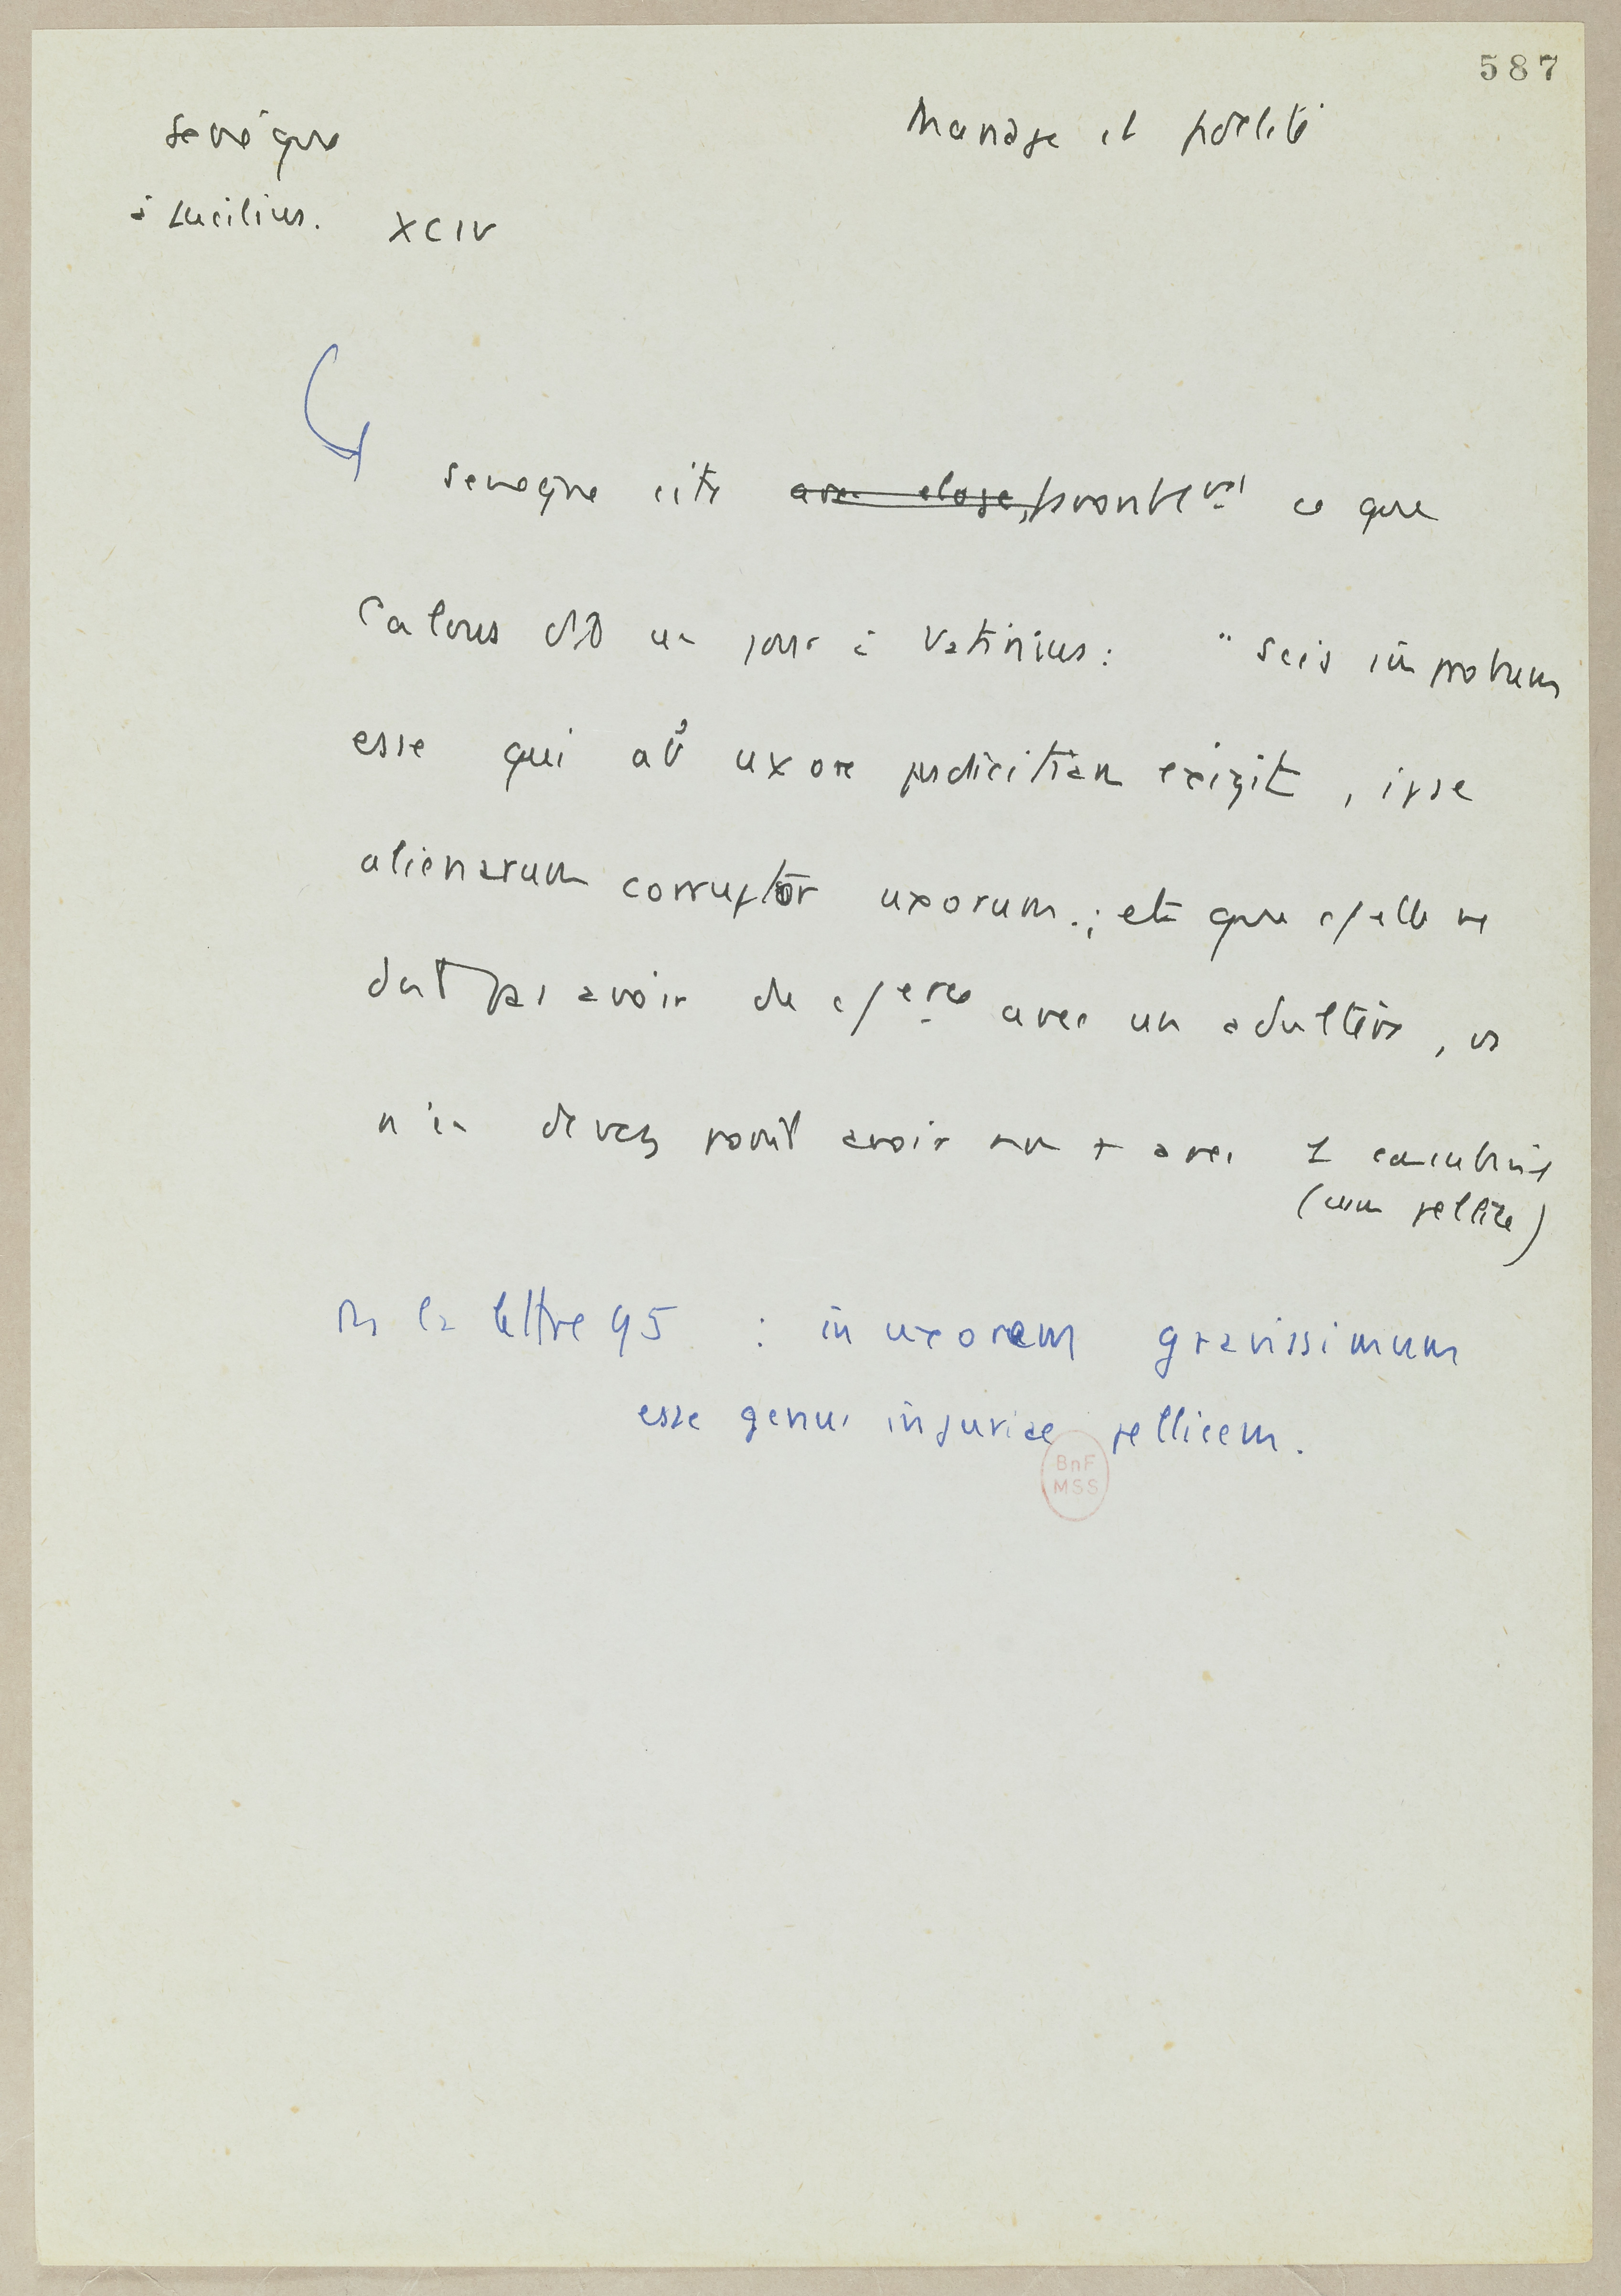 587
Sénèque
Mariage et fidélité
à Lucilius. XCIV
Seneque cite avec eloge, ce que
Calvus dit un jour à Vatinius : "scis improbum
esse qui ab uxore pudicitiam exigit, ipse
alienarum corruptor uxorum. ; et que elle ne
doit pas avoir de avec un adultère, vs
n'en devez point avoir non + avec 1 concubine
(cum pellice)
Ds la lettre 95 : in uxorem gravissimum
esse genus injuriae pellicem.
BnF
MSS